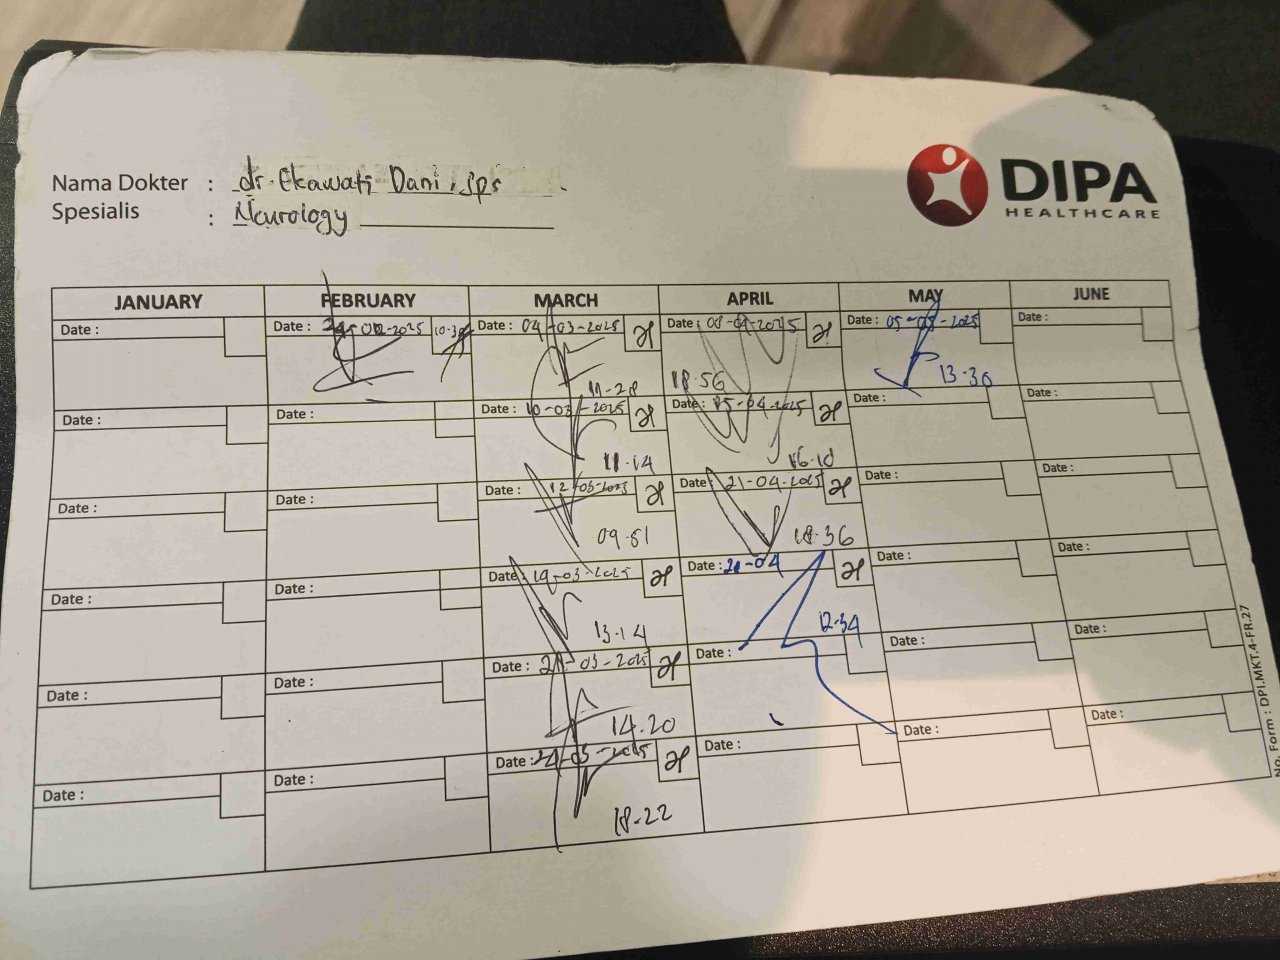 Nama Dokter : dr. Ekawati Dani, Sps
Spesialis : Neurology
DIPA
HEALTHCARE
JANUARY FEBRUARY MARCH APRIL MAY JUNE
Date : Date : 02-2025 10-30 Date : 04-03-2025 Date : 08-04-2025 Date : 05-05-2025 Date :
11-28 18.56 13-30
Date : Date : Date : 10-03-2025 Date : 15-04-2025 Date : Date :
11-14 16-18
Date : Date : Date : 12-03-2025 Date : 21-04-2025 Date : Date :
09.51 18.36
Date : Date : Date : 19-03-2025 Date : -04 Date : Date :
13-14 12-34
Date : Date : Date : -03-2025 Date : Date : Date :
14.20
Date : Date : Date : -03-2025 Date : Date : Date :
18-22
No. Form : DPI.MKT.4-FR.27